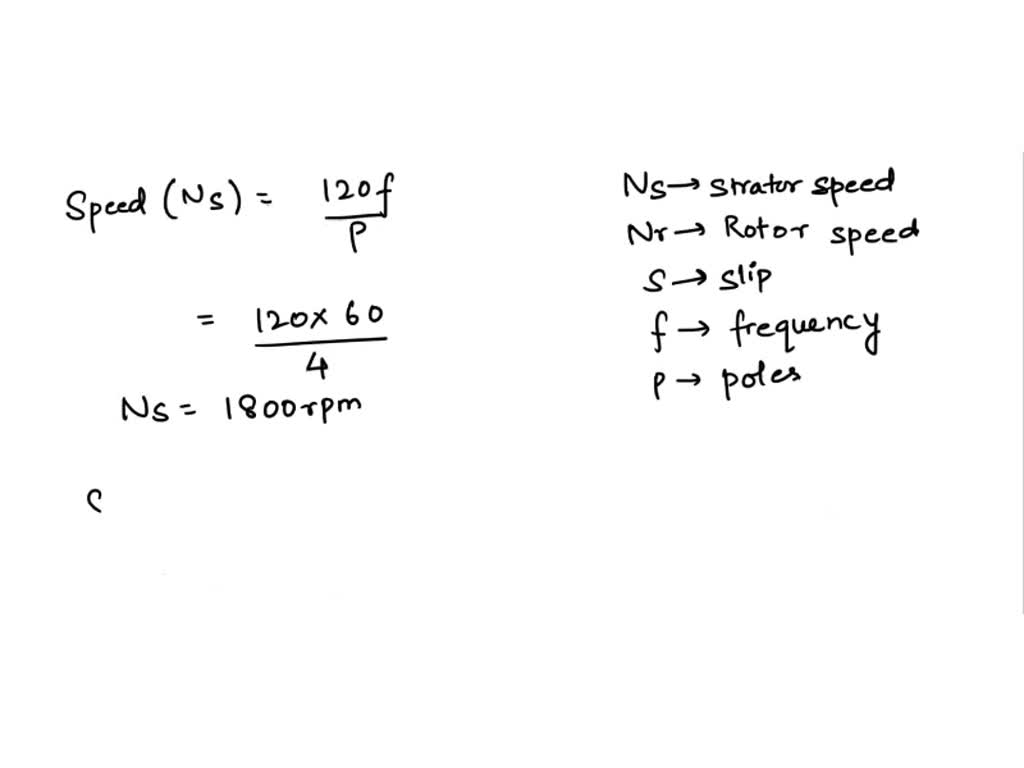 Speed (Ns) = 120f
P
= 120 x 60
4
Ns = 1800rpm
S
Ns → strator speed
Nr → Rotor speed
s → slip
f → frequency
P → poles